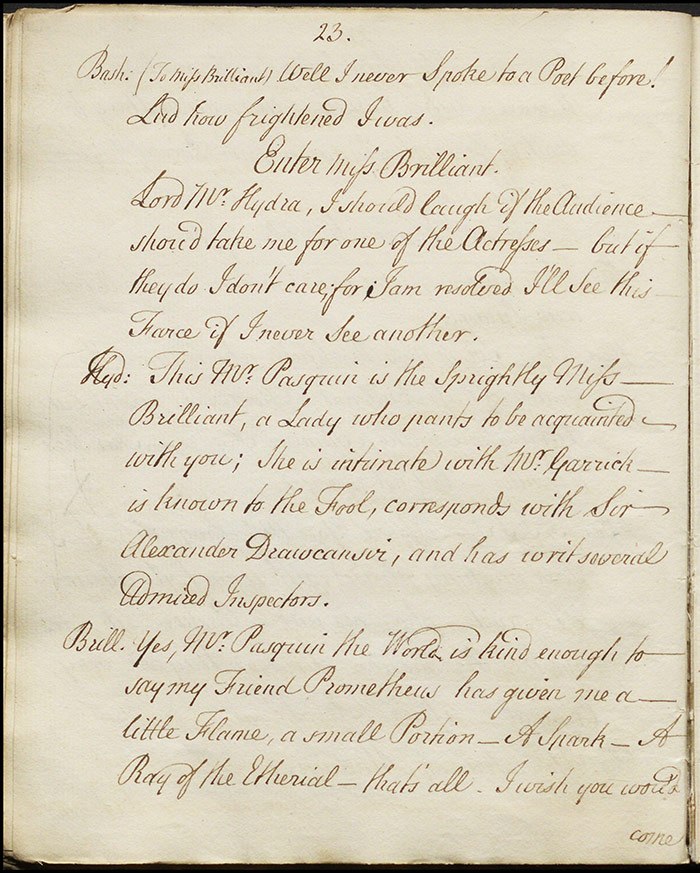 23.
Bash: (To Miss Brilliant) Well I never Spoke to a Poet before!
Lud how frightened I was.
Enter Miss Brilliant.
Lord Mr. Hydra, I should laugh if the Audience
shou'd take me for one of the Actresses — but if
they do I don't care; for, I am resolved I'll See this
Farce if I never See another.
Hyd: This Mr. Pasquin is the Sprightly Miss
Brilliant, a Lady who pants to be acquainted
with you; She is intimate with Mr. Garrick
is known to the Fool, corresponds with Sir
Alexander Drawcansir, and has writ several
Admired Inspectors.
Brill. Yes, Mr. Pasquin the World is kind enough to
say my Friend Prometheus has given me a
little Flame, a small Portion — A Spark — A
Ray of the Etherial — that's all. I wish you would
come